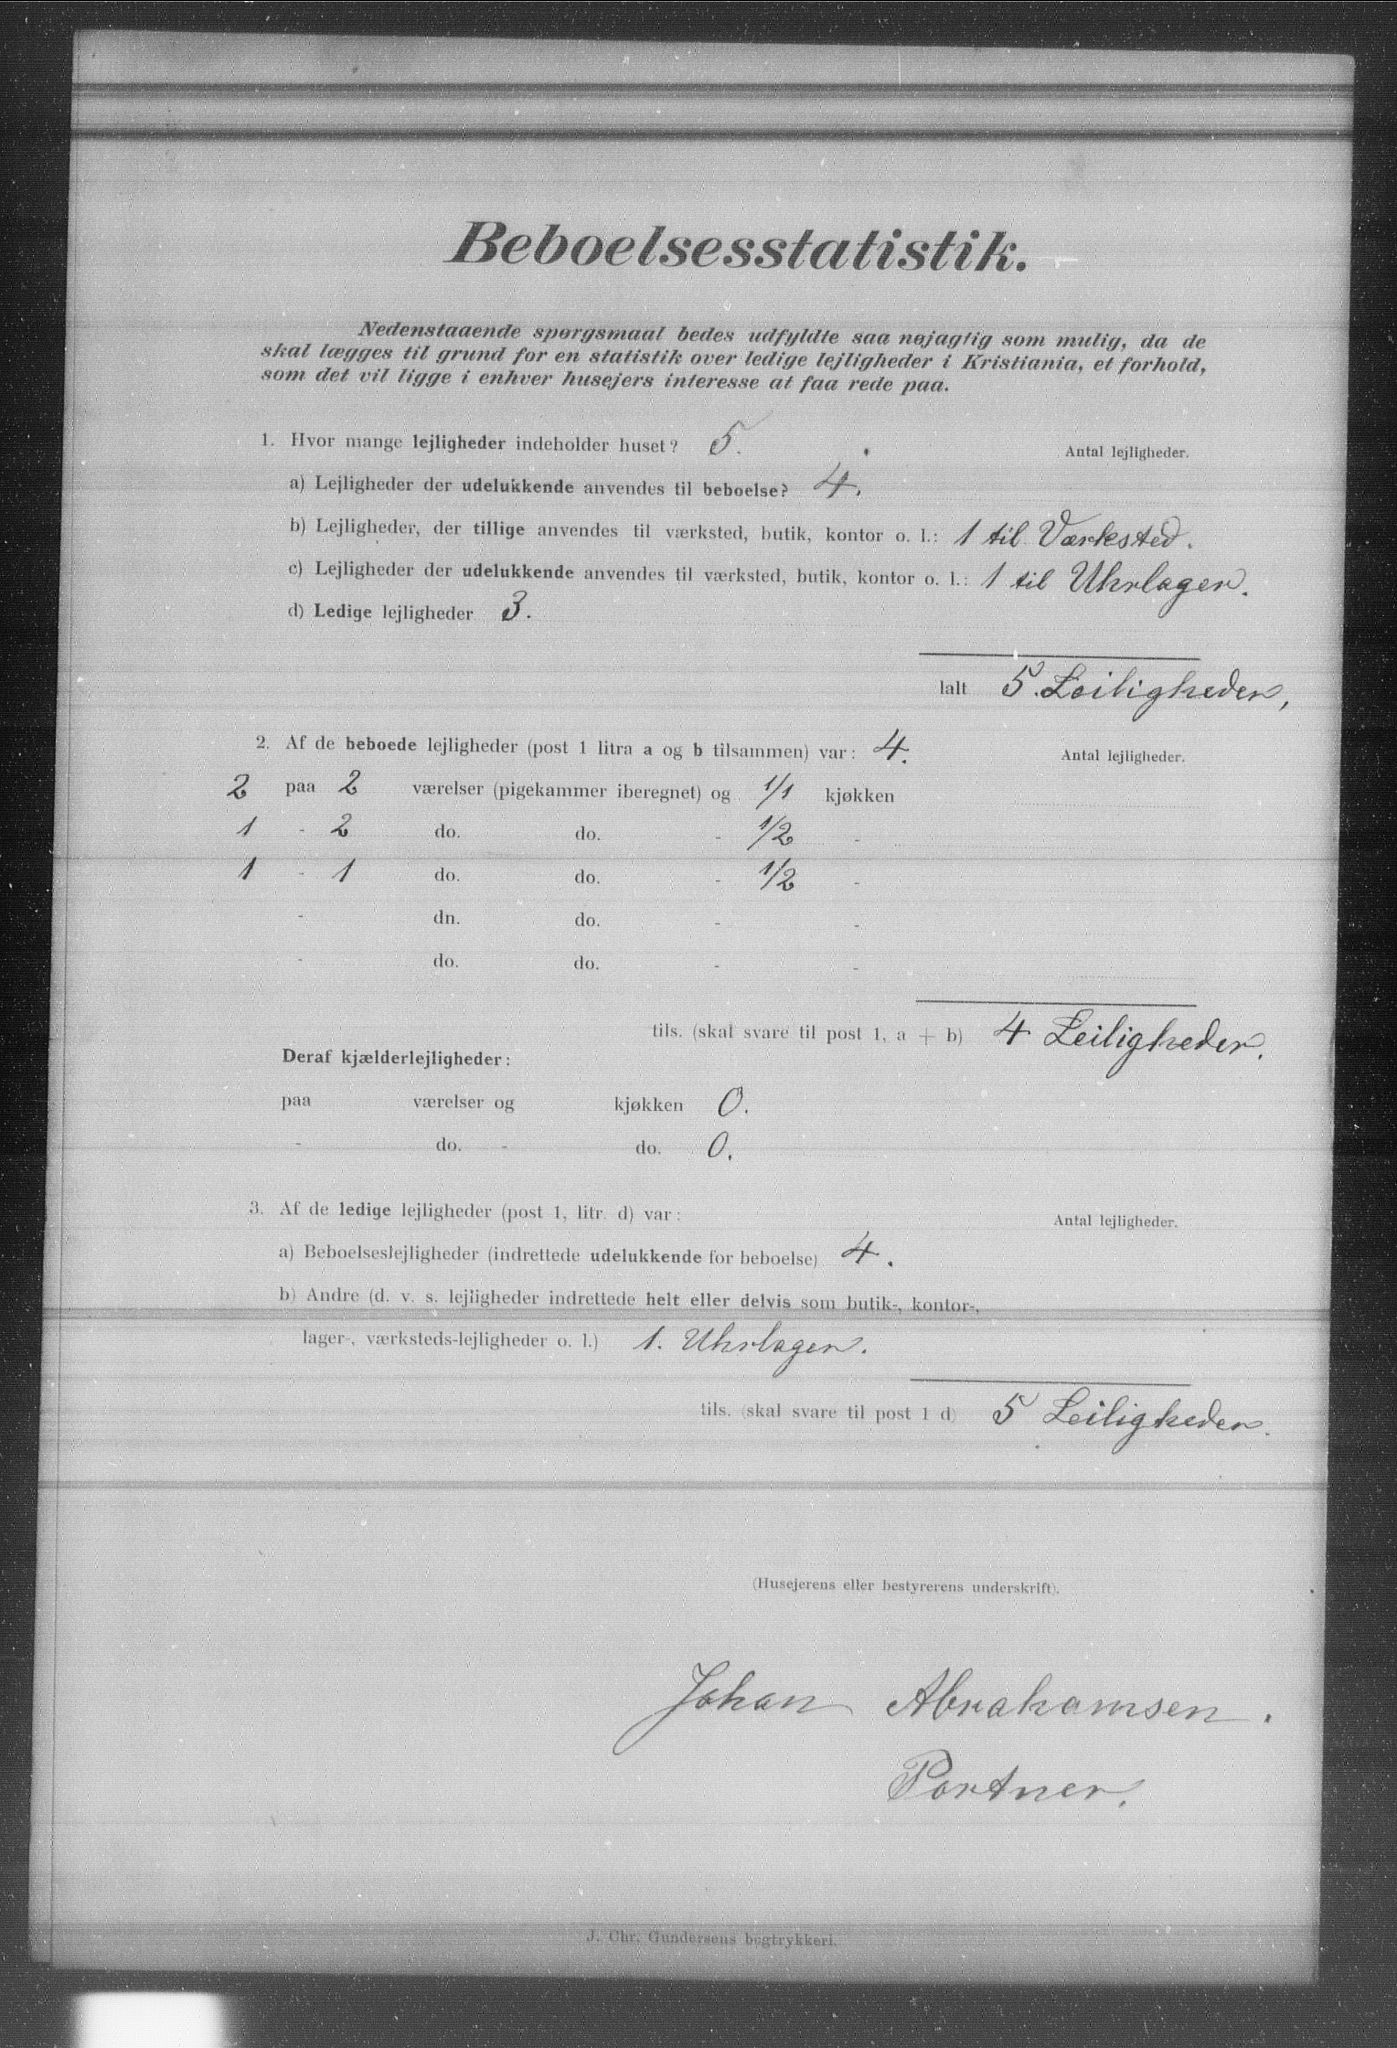 Beboelsesstatistik.
Nedenstaaende spørgsmaal bedes udfyldte saa nøjagtig som mulig, da de
skal lægges til grund for en statistik over ledige lejligheder i Kristiania, et forhold,
som det vil ligge i enhver husejers interesse at faa rede paa.
1. Hvor mange lejligheder indeholder huset? 5.
Antal lejligheder.
a) Lejligheder der udelukkende anvendes til beboelse? 4.
b) Lejligheder, der tillige anvendes til værksted, butik, kontor o. l.: 1 til Værksted.
c) Lejligheder der udelukkende anvendes til værksted, butik, kontor o. l.: 1 til Uhrlager.
d) Ledige lejligheder 3.
Ialt 5. Leiligheder,
2. Af de beboede lejligheder (post 1 litra a og b tilsammen) var: 4.
Antal lejligheder.
2 paa 2 værelser (pigekammer iberegnet) og 1/1 kjøkken
1 - 2 do. do. - 1/2 -
1 - 1 do. do. - 1/2 -
- dn. do. - -
- do. do. - -
tils. (skal svare til post 1, a + b) 4 Leiligheder.
Deraf kjælderlejligheder:
paa værelser og kjøkken 0.
- do. - do. 0.
3. Af de ledige lejligheder (post 1, litr. d) var:
Antal lejligheder.
a) Beboelseslejligheder (indrettede udelukkende for beboelse) 4.
b) Andre (d. v. s. lejligheder indrettede helt eller delvis som butik-, kontor-,
lager-, værksteds-lejligheder o. l.) 1. Uhrlager.
tils. (skal svare til post 1 d) 5 Leiligheder.
(Husejerens eller bestyrerens underskrift).
Johan Abrahamsen.
Portner.
J. Chr. Gundersens bogtrykkeri.